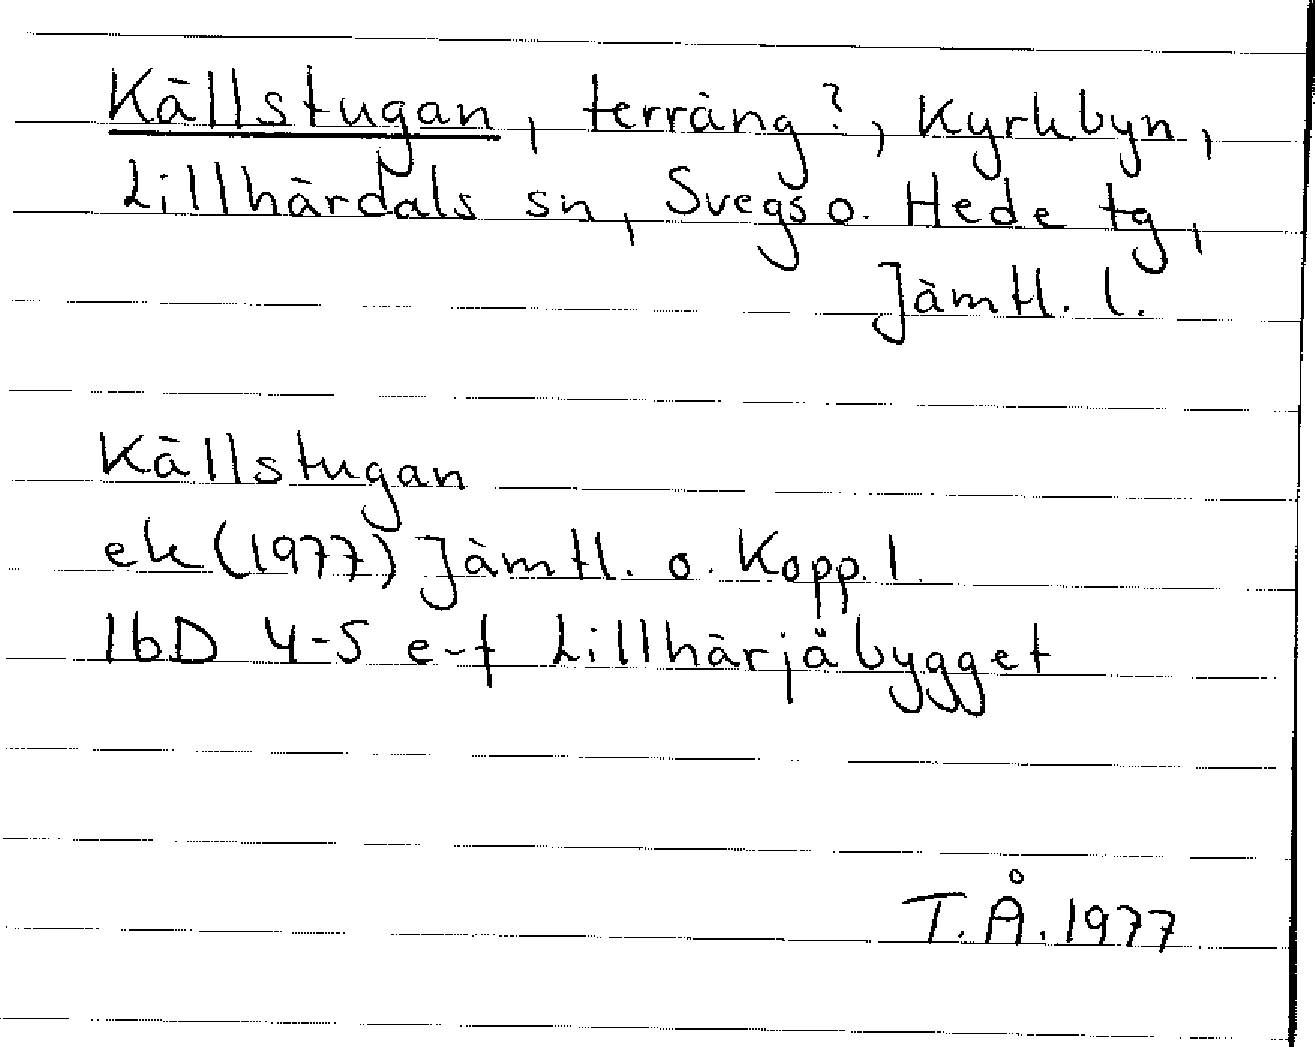 Källstugan, terräng?, Kyrkbyn,
Lillhärdals sn, Svegs o. Hede tg,
Jämtl. l.
Källstugan
ek (1977) Jämtl. o. Kopp. l.
16D 4-5 e-f Lillhärjåbygget
T. Å. 1977